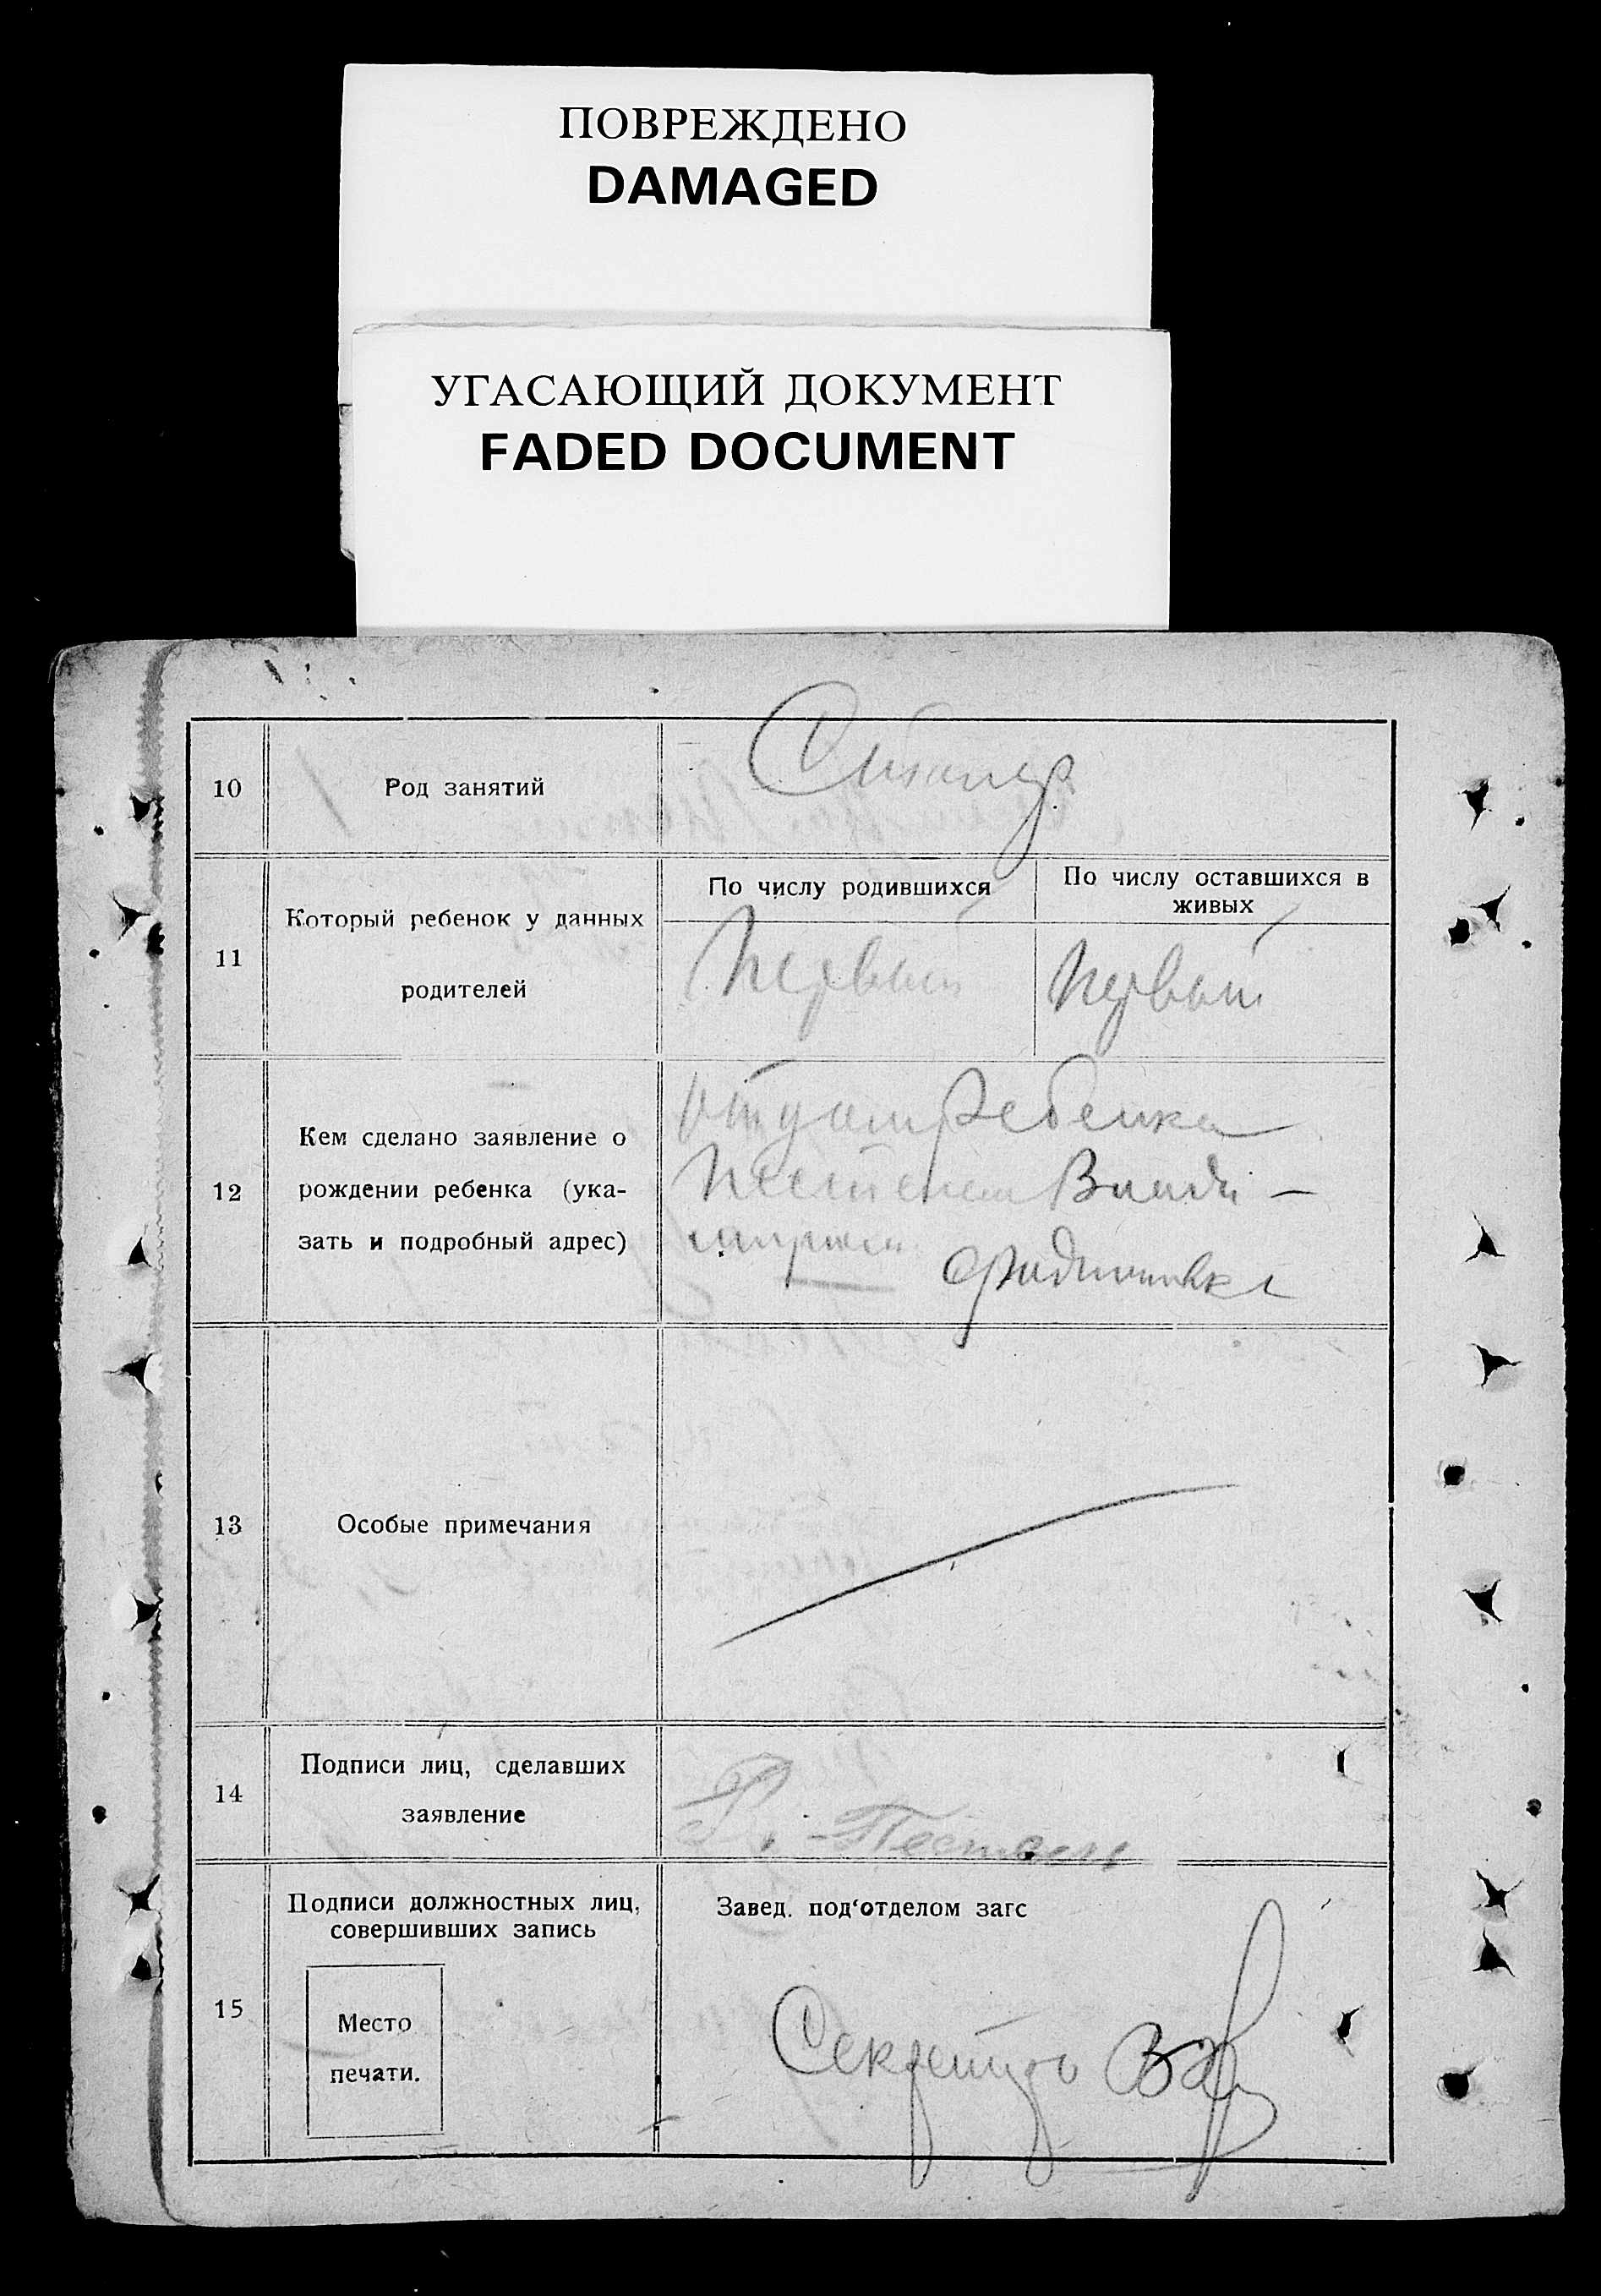 ПОВРЕЖДЕНО
DAMAGED
УГАСАЮЩИЙ ДОКУМЕНТ
FADED DOCUMENT
10
Род занятий
11
Который ребенок у данных
родителей
По числу родившихся
По числу оставшихся в
живых
Первый
Первый
12
Кем сделано заявление о
рождении ребенка (ука-
зать и подробный адрес)
отцом ребенка
13
Особые примечания
14
Подписи лиц, сделавших
заявление
15
Подписи должностных лиц,
совершивших запись
Место
печати.
Завед. под'отделом загс
Секретарь